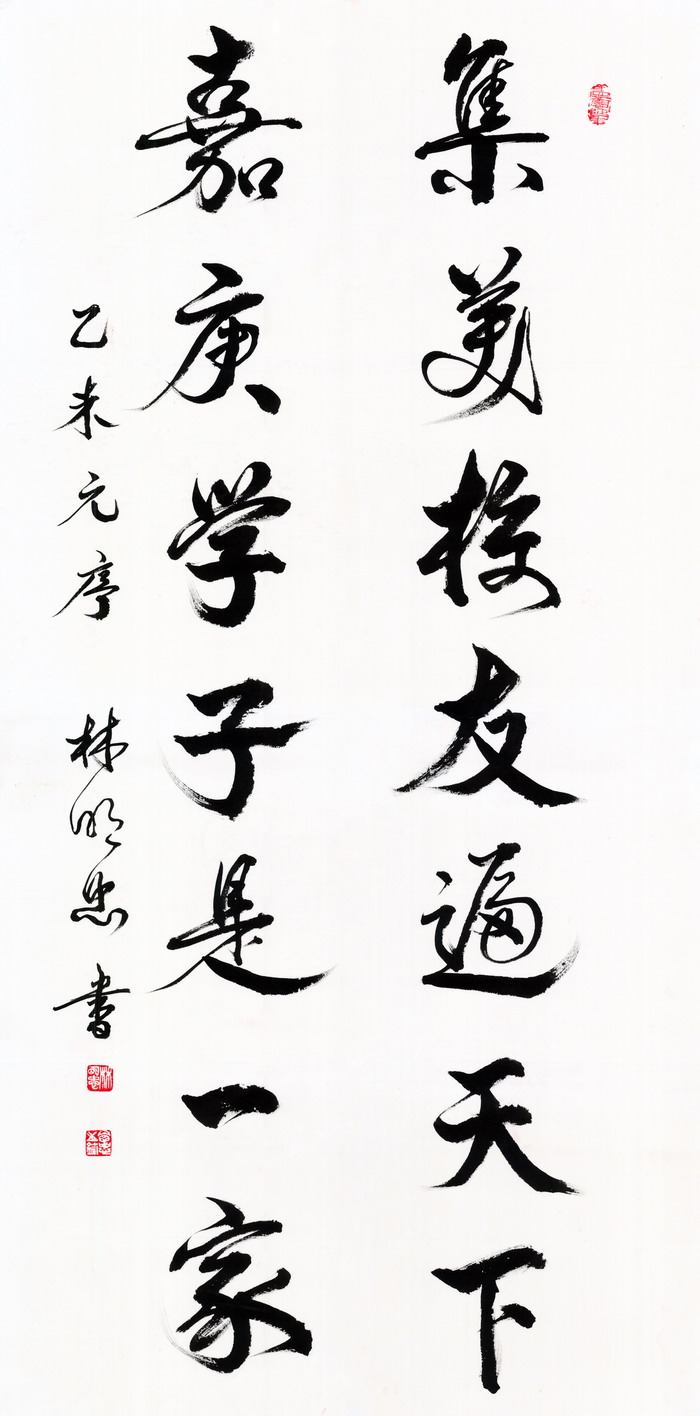 集美校友遍天下
嘉庚学子是一家
乙未元序 林明忠书